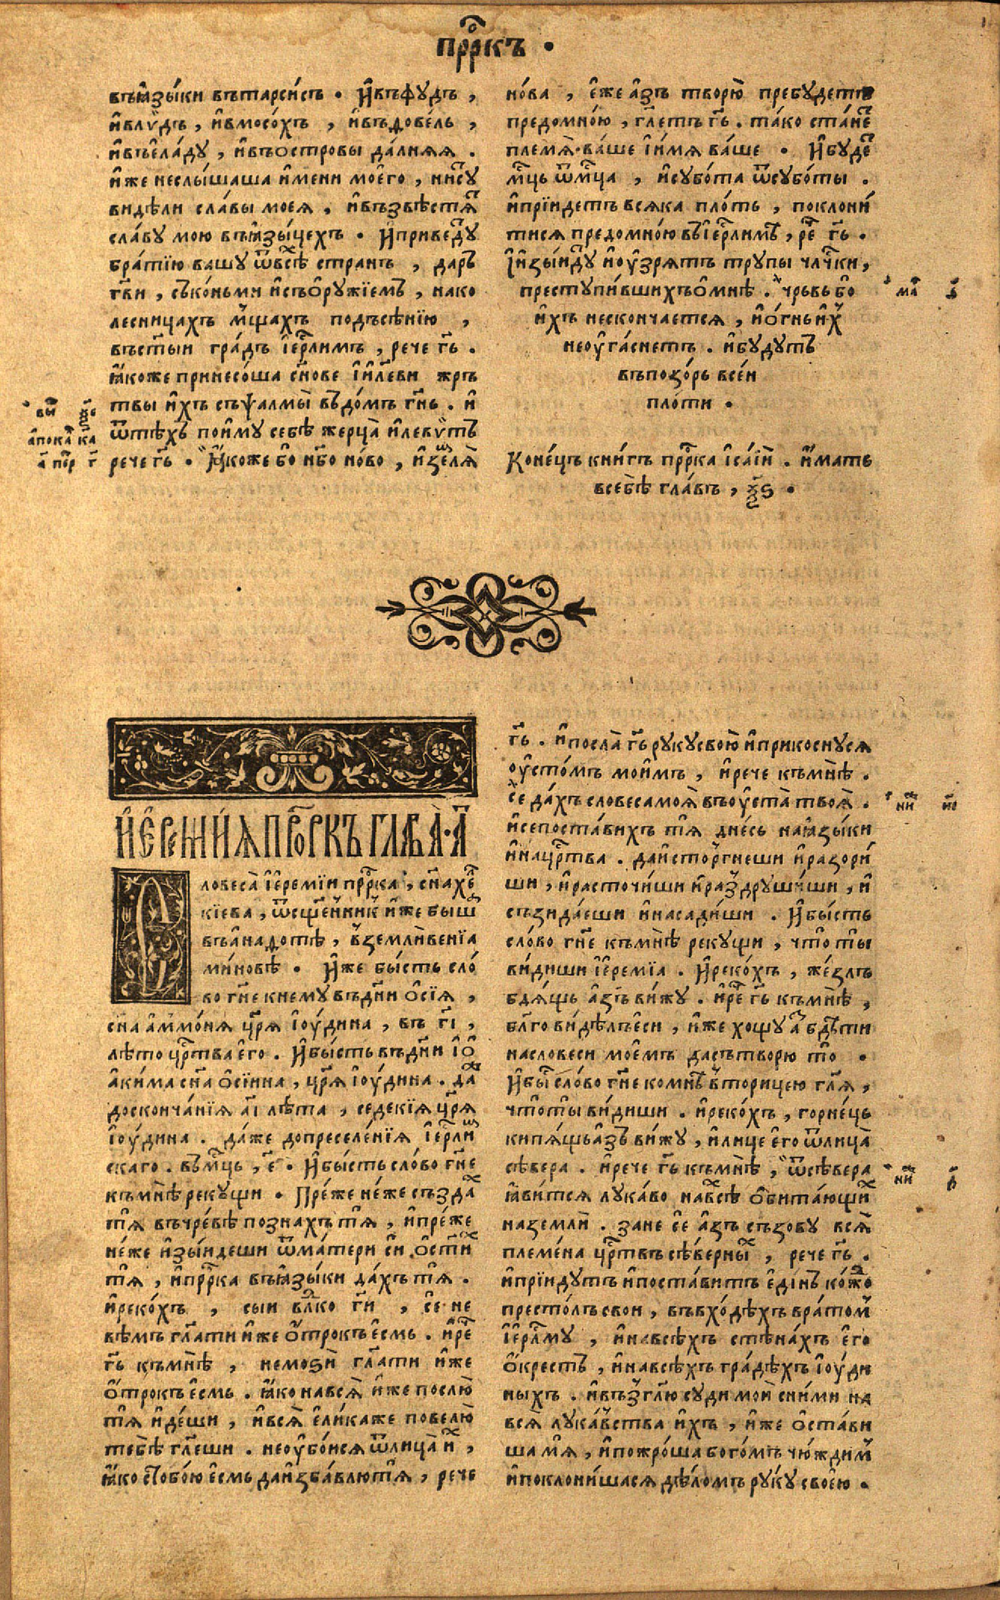 прⷪ҇ркъ •
въꙗ҆зы́ки въѳарси́съ • И҆въфу́дъ ,
и҆влꙋ́дъ , и҆вмосо́хъ , и҆въдове́ль ,
и҆въе҆ла́ду , и҆въо́стровы да́лняя .
и҆же неслы́шаша и҆мени моего̀ , нисꙋⷣ
ви́дѣли сла́вы моея̀ , и҆възвѣстѧⷮ
сла́ву мою въꙗ҆зы́цехъ • И҆приведꙋⷮ
бра́тїю вашу ѿвсѣⷯ странъ , даръ
гв҃и , съко́ньми и҆съо҆ру́жїемъ , на ко
лесницахъ мщ҃ахъ подъсѣ́нїю ,
въст҃ыи гра́дъ і҆ерⷭ҇лимъ , рече гь҃ .
ꙗ҆коже принесо́ша сн҃ове і҆и҃леви жръ
твы и҆хъ съѱалмы̀ въдо́мъ гн҃ь . и҆
ѿтѣ́хъ пои́му себѣ̀ жерца̀ и҆леви́ты
рече гь҃ • Ꙗ҆коже бо не҆бо но́во , и҆ земля̀
но́ва , е҆же а҆зъ творю̀ пребудетъ
предомно́ю , гл҃етъ гь҃ . та́ко ста́неⷮ
племѧ̀ ва́ше і҆и҆мя ва́ше • И҆будеⷮ
мцⷭ҇ь ѿмцⷭ҇а , и҆субо́та ѿсубо́ты .
и҆прїидетъ всяка пло́ть , поклони́
тися предомно́ю въі҆ерⷭ҇лимѣ , реⷱ҇ гь҃ .
І҆и҆зы́идꙋⷮ и҆оу҆́зрятъ трупы чл҃чки ,
преступи́вшихъ о҆мнѣ̀ . чрьвь бо
и҆хъ нескончается , и҆ о́гнь и҆ⷯ
неоу҆га́снетъ . и҆будутъ
въпозо́ръ все́и
пло́ти •
Коне́цъ кни́гъ прⷪ҇рка і҆са́їи . и҆́мать
всебѣ̀ гла́въ , ѯ҃ѕ •
И҆Е҆РЕМИ́Я ПРⷪ҇РКЪ ГЛАВА̀ • А҃
ловеса̀ і҆еремі́и прⷪ҇рка , сн҃а хеⷧ
кїева , ѿсщ҃е́нникъ и҆же бы́ша
въ а҆надо́тѣ , въземлѝ венїа
ми́новѣ • И҆же бы́сть сло́
во гн҃е к нему въдн҃и о҆сі́я ,
сн҃а а҆ммо́ня цр҃я і҆оу́дина , въ г҃і ,
лѣ́то црⷭ҇тва е҆го . И҆бы́сть въдн҃и і҆ѡ
а҆кима сн҃а о҆сі́ина , цр҃я і҆оу́дина . даⷤ
доскончѧ́нїя а҃і лѣ́та , седекі́я цр҃я
і҆оу́дина . да́же допреселе́нїя і҆ерⷭ҇лиⷨ
скаго . въмцⷭ҇ь , е҃ • И҆бы́сть сло́во гн҃е
къмнѣ̀ рекущи • Пре́же не́же създа́ⷯ
тя̀ въчре́вѣ познахъ тя̀ , и҆пре́же
не́же и҆зы́идеши ѿма́тери си , ѡ҆ст҃иⷯ
тя̀ , и҆прⷪ҇рка въꙗ҆зы́ки да́хъ тя̀ .
и҆реко́хъ , сыи влⷣко гⷭ҇и , се́ не
вѣ́мъ гл҃ати и҆же ѻ҆́трокъ е҆смь . и҆реⷱ҇
гь҃ къмнѣ̀ , немоѕѝ гл҃ати и҆же
ѻ҆́трокъ е҆смь . ꙗ҆ко нався̀ и҆же послю̀
тя̀ и҆де́ши , и҆вся̀ е҆ли́каже повелю̀
тебѣ̀ гл҃еши . неоу҆бо́ися ѿлица̀ и҆ⷯ ,
ꙗ҆ко стобо́ю е҆смь да и҆зба́влю тя̀ , рече
гь҃ . и҆посла̀ гь҃ руку свою̀ и҆прикоснуся
оу҆сто́мъ мои́мъ , и҆рече къмнѣ̀ .
се да́хъ словеса моя̀ въоу҆ста̀ твоя̀ .
и҆се поста́вихъ тя̀ дне́сь на ꙗ҆зы́ки
и҆ на црⷭ҇тва . да и҆сто́ргнеши и҆разори́
ши , и҆расточи́ши и҆раздруши́ши , и҆
съзида́еши и҆насади́ши . И҆бы́сть
сло́во гн҃е къмнѣ̀ рекущи , что̀ ты̀
ви́диши і҆еремі́а . И҆реко́хъ , же́злъ
бдя́щь а҆зъ ви́жу . и҆реⷱ҇ гь҃ къмнѣ̀ ,
бл҃го ви́дѣлъ е҆си , и҆же хощу̀ а҆зъ бдѣти
насловеси мое́мъ да сътворю то̀ •
И҆быⷭ҇ сло́во гн҃е ко мнѣ вторицею гл҃я ,
что̀ ты̀ ви́диши . и҆реко́хъ , горне́ць
кипя́щь а҆зъ ви́жу , и҆лице е҆го̀ ѿлица̀
сѣ́вера . и҆рече гь҃ къмнѣ̀ , ѿсѣ́вера
ꙗ҆ви́тся лука́во навсѣⷯ о҆бита́ющиⷯ
наземлѝ . зане се а҆зъ съзову вся̀
племе́на црⷭ҇твъ сѣ́верныⷯ , рече гь҃ .
и҆прїи́дутъ и҆поста́витъ е҆ди́нъ ко́ждо
престо́лъ свои , въвхо́дѣхъ вра́томъ
і҆ерⷭ҇лму , и҆навсѣ́хъ стѣна́хъ е҆го̀
о҆́крестъ , и҆навсѣ́хъ гра́дѣхъ і҆оу́ди
ныхъ . и҆възглю̀ суди моѝ с ни́ми на
вся̀ лука́вства и҆хъ , и҆же о҆ста́ви
ша мя̀ , и҆пожро́ша бого́мъ чю́ждимъ
и҆поклони́шася дѣ́ломъ ру́ку свое́ю •